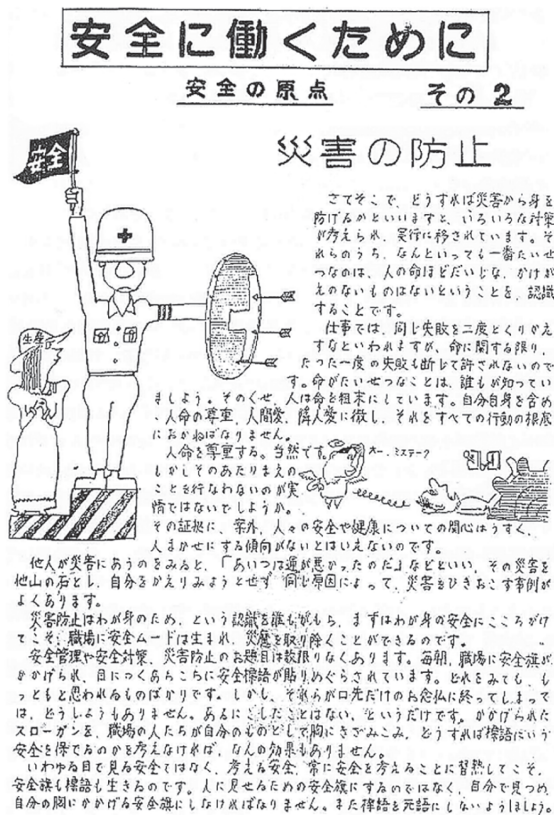 安全に働くために
安全の原点 その2
災害の防止
安全
生産
さてそこで、どうすれば災害から身を
防げるかといいますと、いろいろな対策
が考えられ、実行に移されています。そ
れらのうち、なんといっても一番たいせ
つなのは、人の命ほどだいじな、かけが
えのないものはないということを、認識
することです。
仕事では、同じ失敗を二度とくりかえ
すなといわれますが、命に関する限り、
たった一度の失敗も断じて許されないので
す。命がたいせつなことは、誰もが知ってい
ましょう。そのくせ、人は命を粗末にしています。自分自身を含め
、人命の尊重、人間愛、隣人愛に徹し、それをすべての行動の根底
におかねばなりません。
人命を尊重する。当然です。
しかしそのあたりまえの
ことを行なわないのが実
情ではないでしょうか。
オー、ミステーク
その証拠に、案外、人々の安全や健康についての関心はうすく、
人まかせにする傾向がないとはいえないのです。
他人が災害にあうのをみると、「あいつは運が悪かったのだ」などといい、その災害を
他山の石とし、自分をかえりみようとせず、同じ原因によって、災害をひきおこす事例が
よくあります。
災害防止はわが身のため、という認識を誰もがもち、まずはわが身の安全にこころがけ
てこそ、職場に安全ムードは生まれ、災魔を取り除くことができるのです。
安全管理や安全対策、災害防止のお題目は数限りなくあります。毎朝、職場に安全旗が
かかげられ、目につくあちこちに安全標語が貼りめぐらされています。どれをみても、も
っともと思われるものばかりです。しかし、それらが口先だけのお念仏に終ってしまって
は、どうしようもありません。あるにこしたことはない、というだけです。かかげられた
スローガンを、職場の人たちが自分のものとして胸にきざみこみ、どうすれば標語にいう
安全を保てるのかを考えなければ、なんの効果もありません。
いわゆる目で見る安全ではなく、考える安全、常に安全を考えることに習熟してこそ、
安全旗も標語も生きるのです。人に見せるための安全旗にするのではなく、自分で見つめ、
自分の胸にかかげる安全旗にしなければなりません。また標語を冗語にしないようにしましょう。